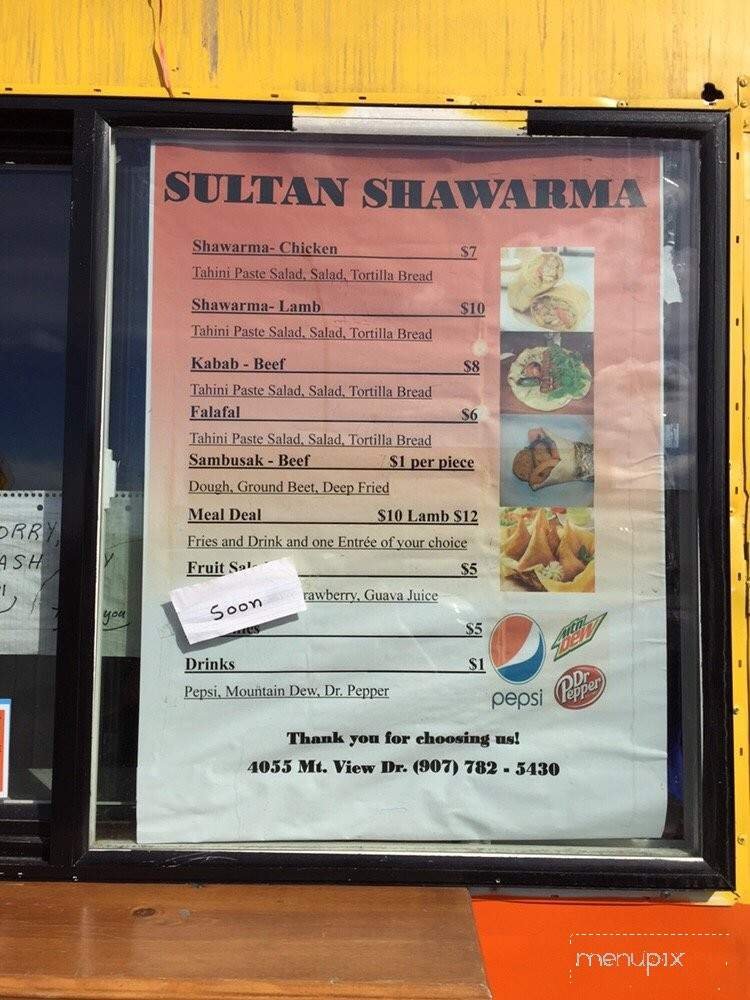 SULTAN SHAWARMA
Shawarma- Chicken $7
Tahini Paste Salad, Salad, Tortilla Bread
Shawarma- Lamb $10
Tahini Paste Salad, Salad, Tortilla Bread
Kabab - Beef $8
Tahini Paste Salad, Salad, Tortilla Bread
Falafal $6
Tahini Paste Salad, Salad, Tortilla Bread
Sambusak - Beef $1 per piece
Dough, Ground Beet, Deep Fried
Meal Deal $10 Lamb $12
Fries and Drink and one Entrée of your choice
Fruit $5
Soon
Guava Juice
$5
Drinks $1
Pepsi, Mountain Dew, Dr. Pepper
Mtn Dew
pepsi
Dr Pepper
Thank you for choosing us!
4055 Mt. View Dr. (907) 782 - 5430
you
menupix